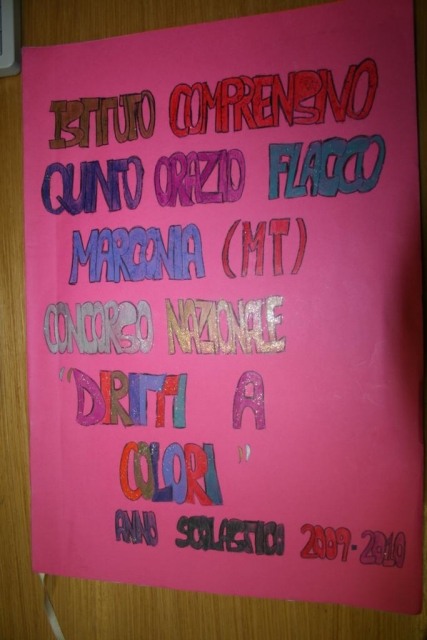 ISTITUTO COMPRENSIVO
QUINTO ORAZIO FLACCO
MARCONIA (MT)
CONCORSO NAZIONALE
"DIRITTI A
COLORI"
ANNO SCOLASTICO 2009-2010